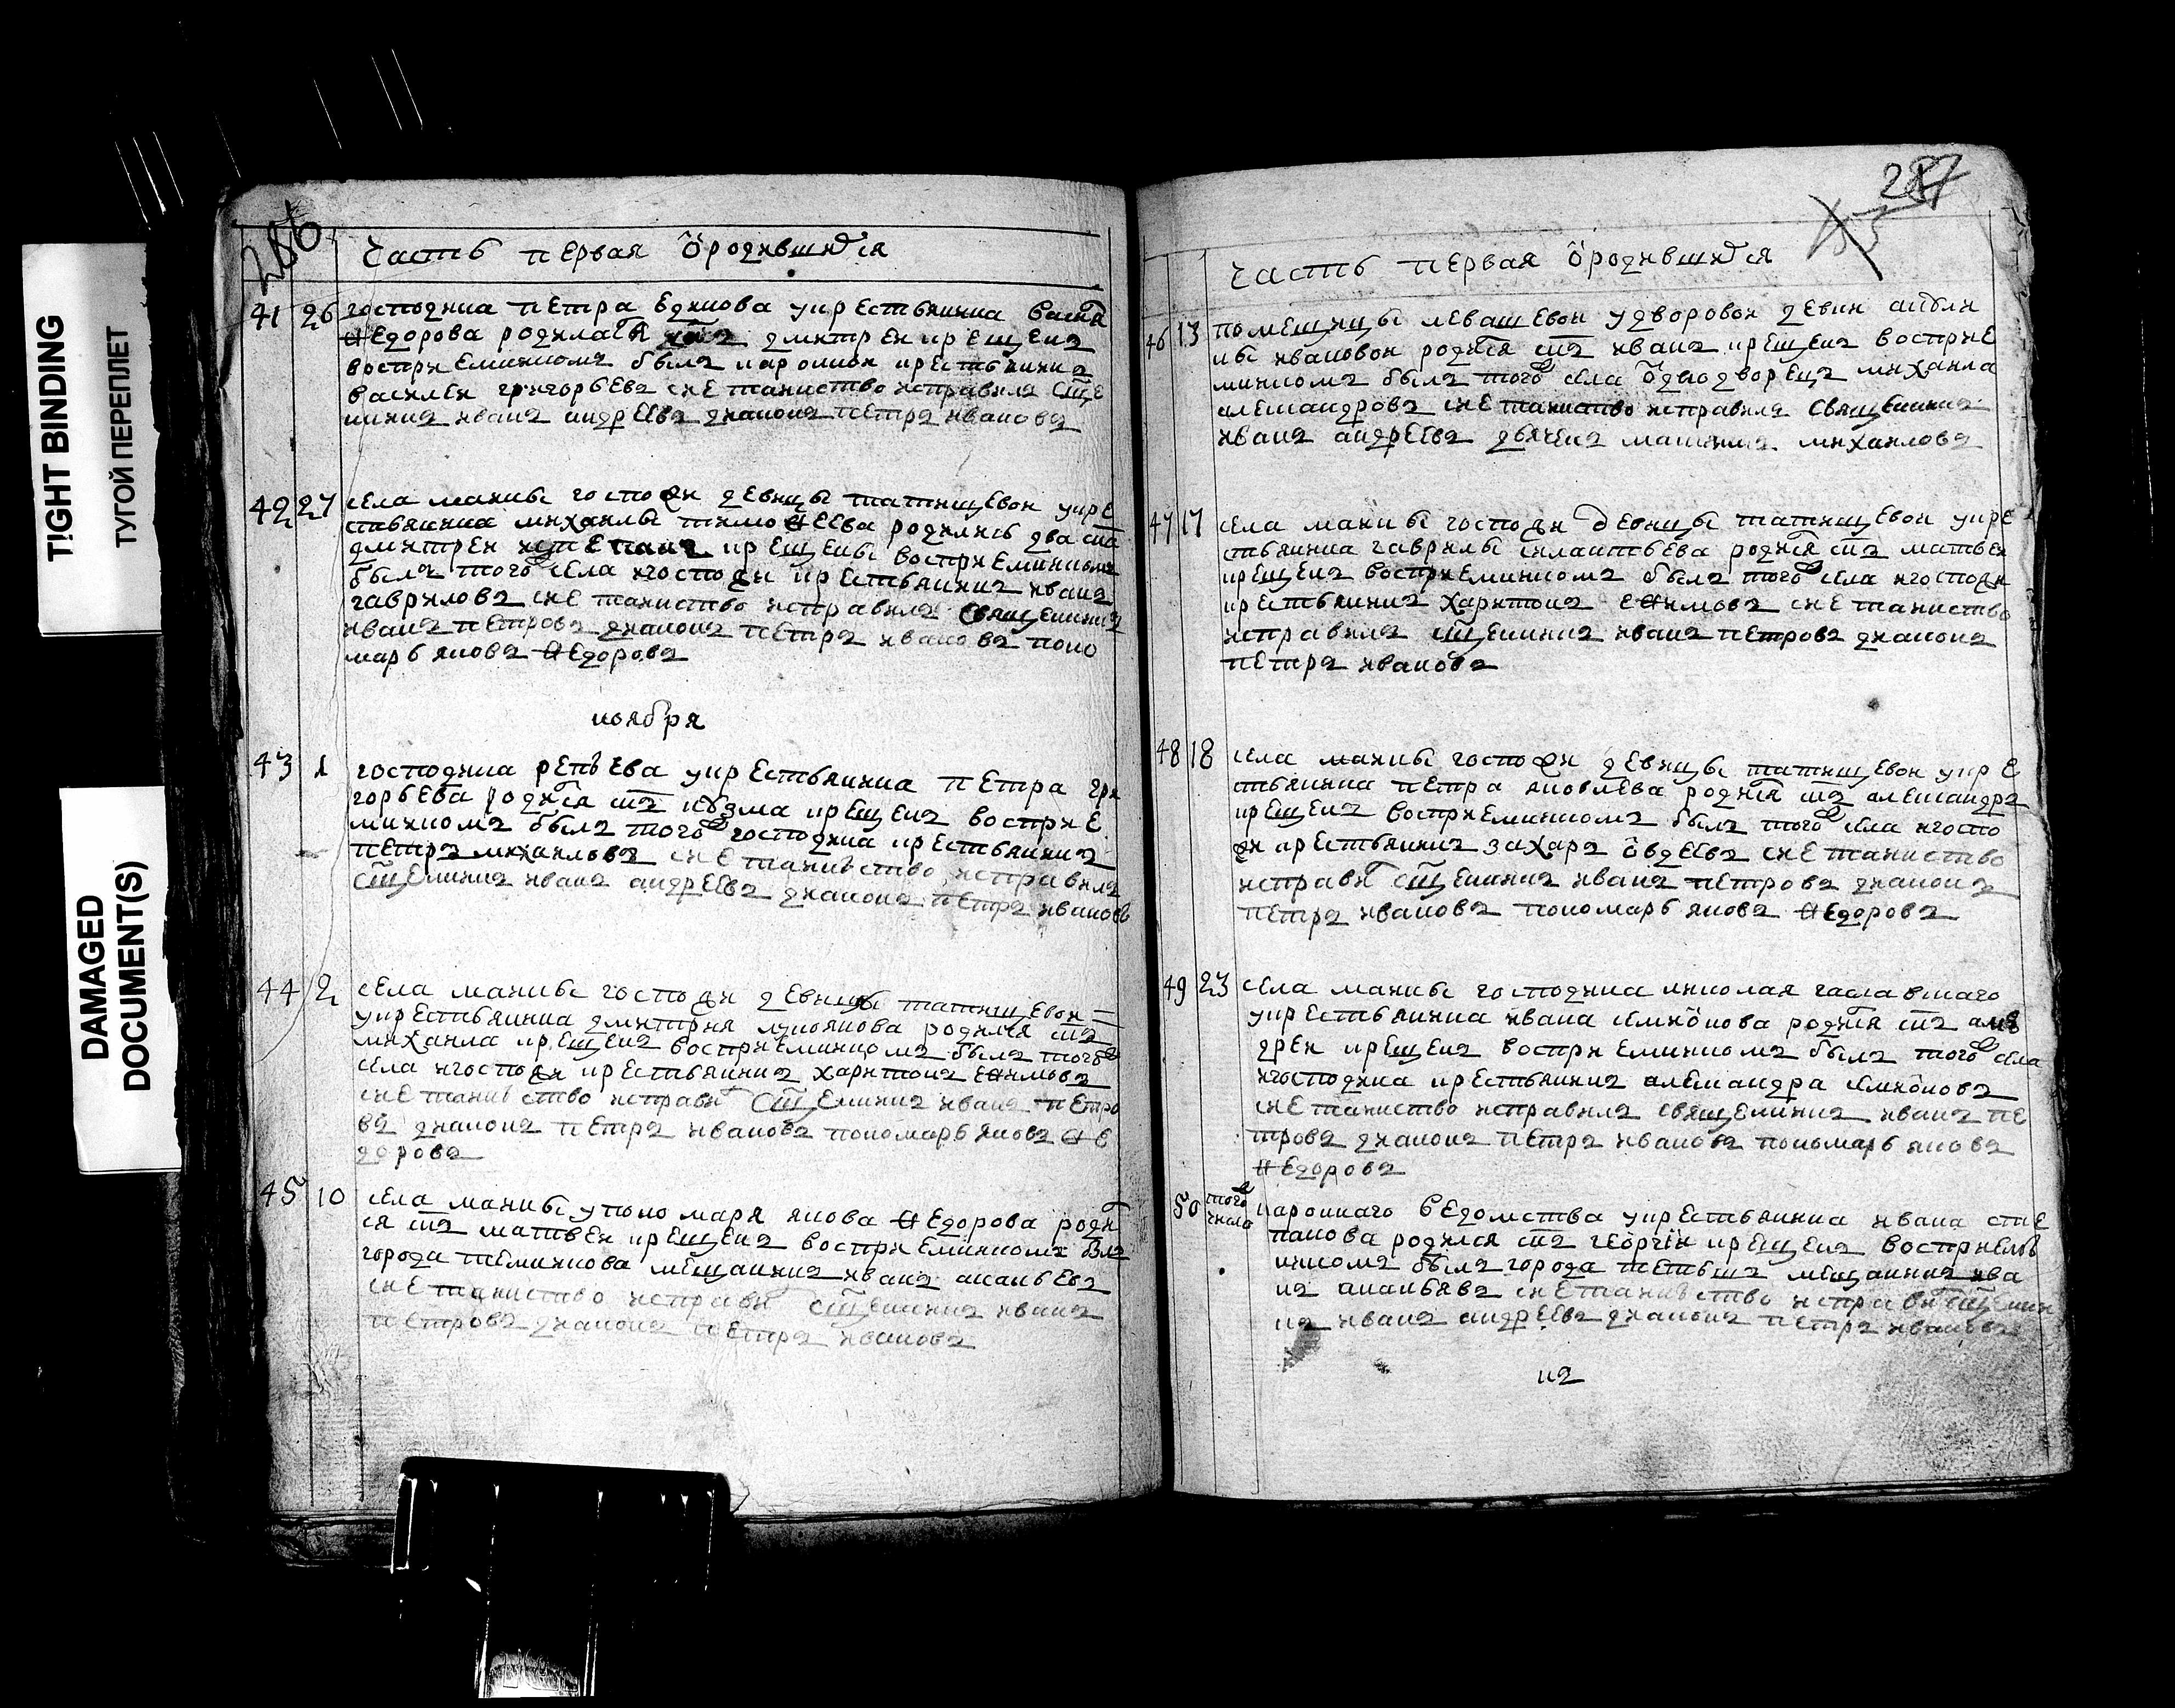 TIGHT BINDING
ТУГОЙ ПЕРЕПЛЕТ
DAMAGED
DOCUMENT(S)
286
часть первая ородившихся
41 26 господина петра едикова укрестьянина васил
ѳедорова родилася дмитреи крещенъ
восприемникомъ былъ крестьянинъ
василеи григорьевъ сие таинство исправилъ сще
нникъ иванъ андреевъ диаконъ петръ ивановъ
42 27 села макиы господи девицы татищевои укре
стьянина михаилы тимоѳеева родились два сна
дмитреи истепанъ крещены восприемникомъ
былъ тогоже села игосподи крестьянинъ иванъ
гавриловъ сие таинство исправилъ священникъ
иванъ петровъ диаконъ петръ ивановъ поно
марь яковъ ѳедоровъ
ноября
43 1 господина репьева укрестьянина петра гри
горьева родися снъ козма крещенъ восприе
мникомъ былъ тогоже господина крестьянинъ
петръ михаиловъ сие таинство исправилъ
сщенникъ иванъ андреевъ диаконъ петръ ивановъ
44 2 села макиы господи девицы татищевои
укрестьянина дмитрия лукоянова родился снъ
михаила крещенъ восприемникомъ былъ тогоже
села игосподи крестьянинъ харитонъ еѳимовъ
сие таинство исправи сщенникъ иванъ петро
въ диаконъ петръ ивановъ пономарь яковъ ѳе
доровъ
45 10 села макиы упономаря якова ѳедорова роди
ся снъ матвеи крещенъ восприемникомъ былъ
города темникова мещанинъ иванъ ананьевъ
сие таинство исправи сщенникъ иванъ
петровъ диаконъ петръ ивановъ
287
часть первая ородившихся
46 13 помещицы левашевои удворовои девки
ны ивановои родися снъ иванъ крещенъ восприе
мникомъ былъ тогоже села однодворецъ михаила
александровъ сие таинство исправилъ священникъ
иванъ андреевъ дьячекъ михаиловъ
47 17 села макиы господи девицы татищевои укре
стьянина гаврилы силантьева родися снъ матвеи
крещенъ восприемникомъ былъ тогоже села игосподи
крестьянинъ харитонъ еѳимовъ сие таинство
исправилъ сщенникъ иванъ петровъ диаконъ
петръ ивановъ
48 18 села макиы господи девицы татищевои укре
стьянина петра яковлева родися снъ александръ
крещенъ восприемникомъ былъ тогоже села игоспо
ди крестьянинъ захаръ овдеевъ сие таинство
исправи сщенникъ иванъ петровъ диаконъ
петръ ивановъ пономарь яковъ ѳедоровъ
49 23 села макиы господина николая
укрестьянина ивана семионова родися снъ
дреи крещенъ восприемникомъ былъ тогоже села
игосподина крестьянинъ александра семионовъ
сие таинство исправилъ священникъ иванъ пе
тровъ диаконъ петръ ивановъ пономарь яковъ
ѳедоровъ
50 тогоже числа ведомства укрестьянина ивана сте
панова родился снъ георгии крещенъ восприем
никомъ былъ города мещанинъ ива
нъ ананьявъ сие таинство исправи сщенни
къ иванъ андреевъ диаконъ петръ ивановъ
нъ